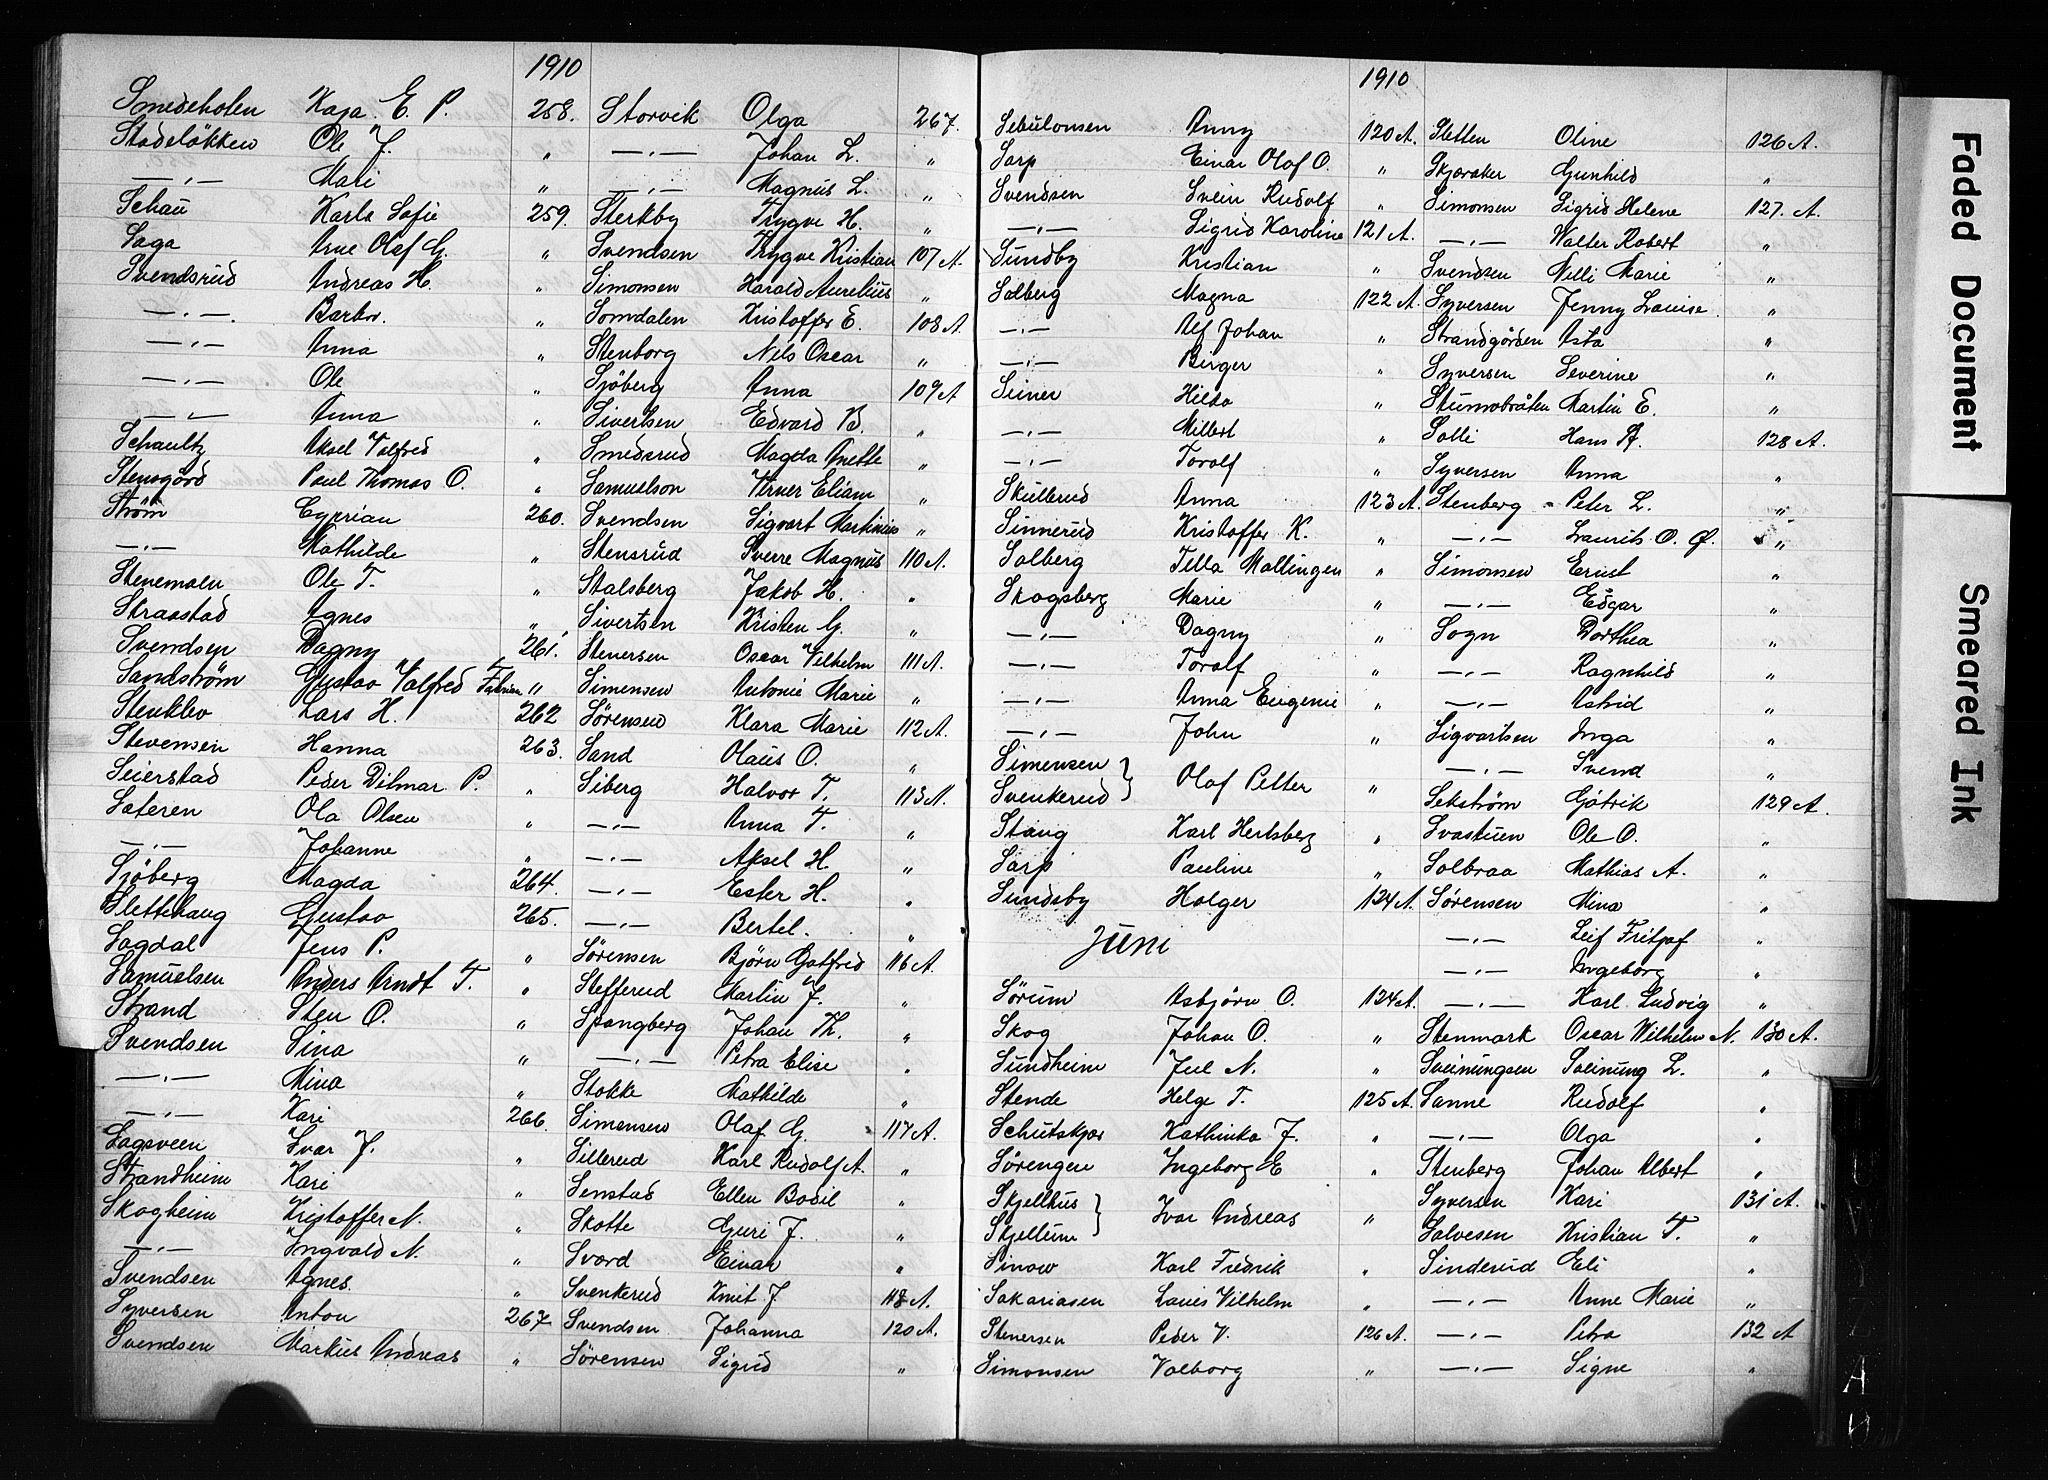 1910
Smedeholen Kaja E. P. 258.
Stadeløkken Ole J. "
—"— Mari "
Schau Karla Sofie 259.
Saga Arne Olaf G. "
Svendsrud Andreas H. "
—"— Barbro. "
—"— Anna "
—"— Ole "
—"— Anna "
Schaultz Aksel Valfred "
Stensgård Paul Thomas O. "
Strøm Cyprian 260.
—"— Mathilde "
Stenemoen Ole T. "
Straastad Agnes "
Svendsen Dagny 261.
Sandstrøm Gustav Valfred "
Stenklev Lars H. 262
Stevensen Hanna 263.
Seierstad Peder Dilmar P. "
Sateren Ola Olsen "
—"— Johanne "
Sjøberg Magda 264.
Slettehaug Gustav 265.
Sagdal Jens P. "
Samuelsen Anders Arndt T. "
Strand Sten O. "
Svendsen Sina "
—"— Mina "
—"— Kari 266.
Sagsveen Ivar J. "
Strandheim Kari "
Skogheim Kristoffer N. "
—"— Ingvald N. "
Svendsen Agnes. "
Syversen Anton 267
Svendsen Markus Andreas "
Storvik Olga 267.
—"— Johan L. "
—"— Magnus L. "
Sterkby Trygve H. "
Svendsen Trygve Kristian 107 A.
Simonsen Harald Aurelius "
Somdalen Kristoffer E. 108 A.
Stenborg Nils Oscar "
Sjøberg Anna 109 A
Sivertsen Edvard B. "
Smedsrud Magda Anette "
Samuelson Verner Eliam "
Svendsen Sigvart Martinius "
Stensrud Sverre Magnus 110 A.
Stalsberg Jakob H. "
Sivertsen Kristen G. "
Stenersen Oscar Vilhelm 111 A.
Simensen Antonie Marie "
Sørensen Klara Marie 112 A.
Sand Olaus O. "
Siberg Halvor T. 113 A.
—"— Anna T. "
—"— Aksel H. "
—"— Ester H. "
—"— Bertel. "
Sørensen Bjørn Gotfred 116 A.
Stefferud Martin J. "
Spangberg Johan Th. "
—"— Petra Elise "
Stokke Mathilde "
Simensen Olaf G. 117 A.
Sillerud Karl Rudolf A. "
Senstad Ellen Bodil "
Skotte Guri J. "
Sværd Einar "
Svenkerud Knut J 118 A.
Svendsen Johanna 120 A.
Sørensen Sigrid "
1910
Sebulonsen Anny 120 A.
Sarp Einar Olaf O. "
Svendsen Svein Rudolf "
—"— Sigrid Karoline 121 A.
Sundby Kristian "
Solberg Magna 122 A.
—"— Alf Johan "
—"— Birger "
Seiner Hilda "
—"— Millert "
—"— Toralf "
Skullerud Anna 123 A.
Sinnerud Kristoffer K. "
Solberg Tella Mallingen "
Skogsberg Marie "
—"— Dagny "
—"— Toralf "
—"— Anna Eugenie "
—"— John "
Simensen } Olaf Petter "
Svenkerud }
Stang Karl Hertsberg "
Sarp Pauline "
Sundsby Holger 124 A.
Juni
Sørum Asbjørn O. 124 A.
Skog Johan O. "
Sundheim Juel N. "
Stende Helge T. 125 A.
Schutskjær Kathinka J. "
Sørengen Ingeborg E "
Skjelhus } Ivar Andreas "
Skjellum }
Sinow Karl Fredrik "
Sakariasen Lauis Vilhelm "
Stenersen Peder V. 126 A.
Simonsen Valborg "
Sletten Oline 126 A.
Skjæraker Gunhild "
Simonsen Sigrid Helene 127. A.
—"— Walter Robert "
Svendsen Nelli Marie "
Syversen Jenny Louise. "
Strandgården Asta "
Syversen Severine "
Stumobråten Martin E. "
Solli Hans A. 128 A.
Syversen Anna "
Stenberg Peter L. "
—"— Laurits O. Ø. "
Simonsen Ernst "
—"— Edgar "
Sogn Dorthea "
—"— Ragnhild "
—"— Astrid "
Sigvartsen Inga "
—"— Svend "
Sekstrøm Gjøtrik 129 A.
Svastuen Ole O. "
Solbraa Mathias A. "
Sørensen Mina "
—"— Leif Fritjof "
—"— Ingeborg "
—"— Karl Ludvig "
Stenmark Oscar Wilhelm N. 130 A.
Sveinungsen Sveinung L. "
Sanne Rudolf "
—"— Olga "
Stenberg Johan Albert "
Syversen Kari 131 A.
Salvesen Kristian T. "
Sinderud Eli "
—"— Anne Marie "
—"— Petra 132 A
—"— Signe "
Faded Document
Smeared Ink